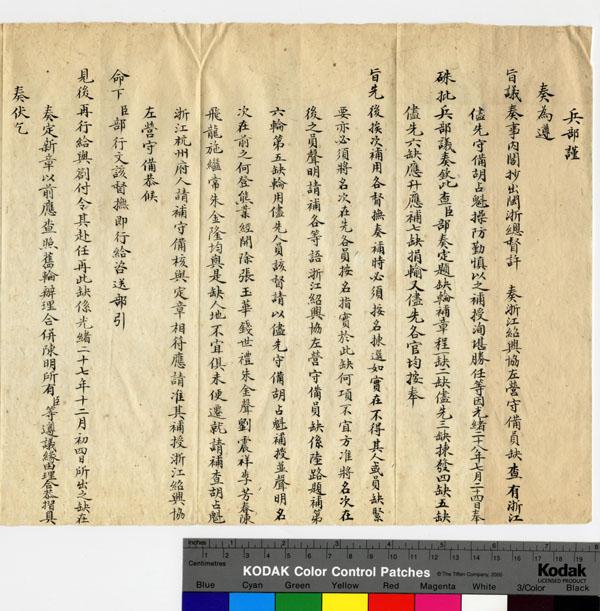 兵部謹
奏為遵
旨議奏事內閣抄出閩浙總督許　奏浙江紹興協左營守備員缺查有浙江
儘先守備胡占魁操防勤慎以之補授洵堪勝任等因光緒二十八年七月二十四日奉
硃批兵部議奏欽此查臣部奏定題缺輪補章程一缺二缺儘先三缺揀發四缺五缺
儘先六缺應升應補七缺捐輸又儘先各官均按奉
旨先後挨次補用各督撫奏補時必須按名揀選如實在不得其人或員缺緊
要亦必須將名次在先各員按名指實於此缺何項不宜方准將名次在
後之員聲明請補各等語浙江紹興協左營守備員缺係陸路題補第
六輪第五缺輪用儘先人員該督請以儘先守備胡占魁補授並聲明名
次在前之何登熊業經開除張玉華錢世禮朱金聲劉震祥李芳春陳
飛龍施繼常朱金隆均與是缺人地不宜俱未便遷就請補查胡占魁
浙江杭州府人請補守備核與定章相符應請准其補授浙江紹興協
左營守備恭候
命下臣部行文該督撫即行給咨送部引
見後再行給與劄付令其赴任再此缺係光緒二十七年十二月初四日所出之缺在
奏定新章以前應查照舊輪辦理合併陳明所有臣等遵議緣由理合恭摺具
奏伏乞
Inches
Centimetres
1 2 3 4 5 6 7 8
1 2 3 4 5 6 7 8 9 10 11 12 13 14 15 16 17 18 19
KODAK Color Control Patches
© The Tiffen Company, 2000
Kodak
LICENSED PRODUCT
Blue Cyan Green Yellow Red Magenta White 3/Color Black